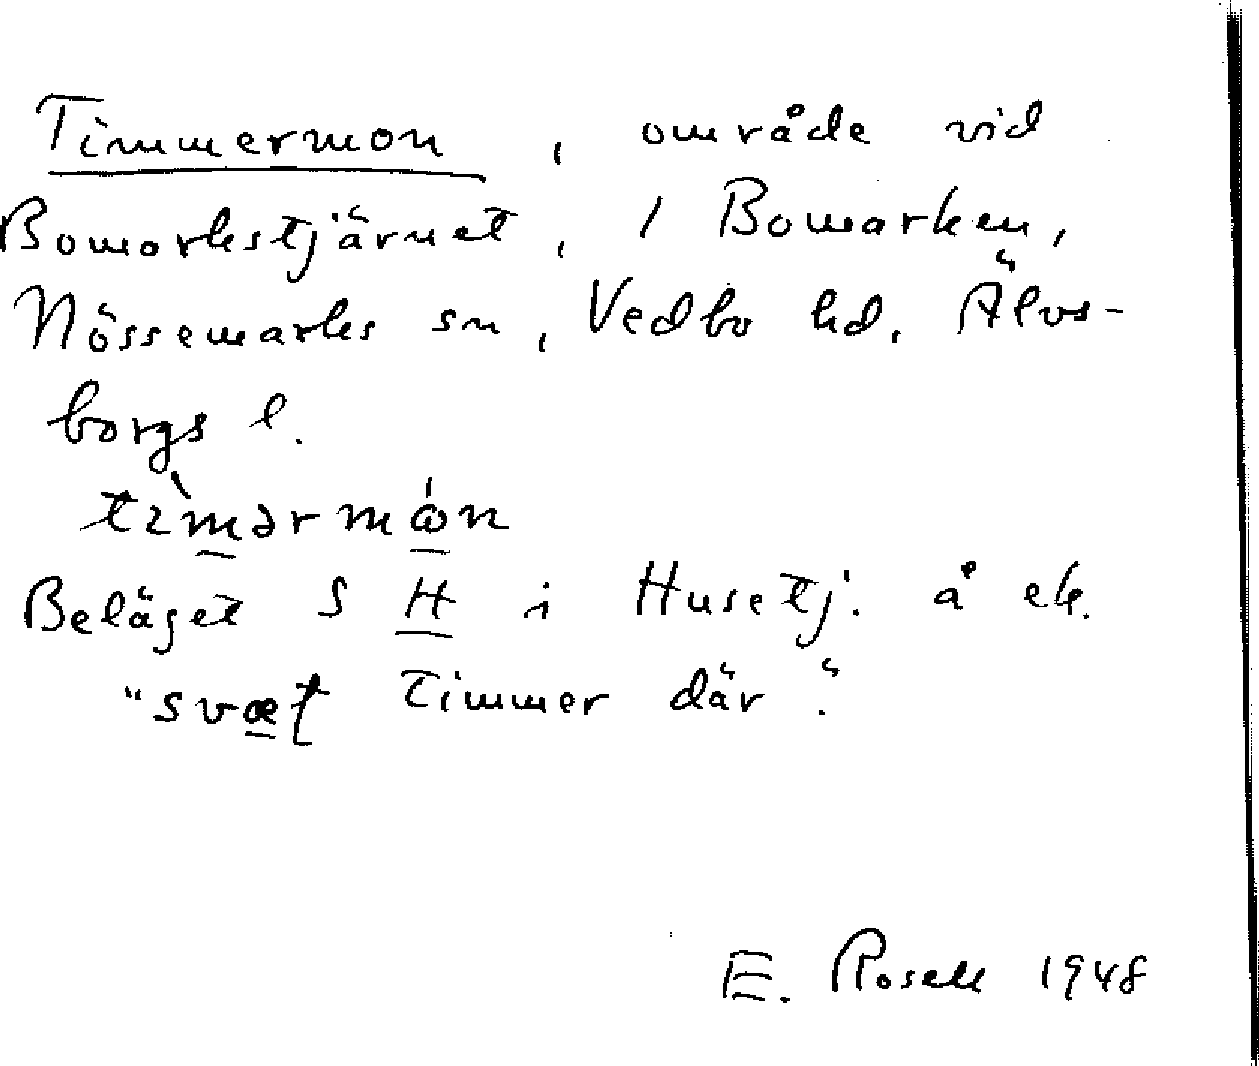 Timmermon, område vid
Bomarkstjärnet, / Bomarken,
Nössemarks sn, Vedbo hd. Älvs-
borgs l.
tìmərmɷ́n
Beläget S H i Husetj. å ek.
"svæt Timmer där".
E. Rosell 1948